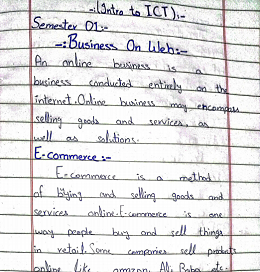 -:(Intro to ICT):-
Semester 01:-
-:Business On Web:-
An online business is a
business conducted entirely on the
internet. Online business may encompass
selling goods and services, as
well as solutions.
E-commerce:-
E-commerce is a method
of buying and selling goods and
services online. E-commerce is one
way people buy and sell things
in retail. Some companies sell products
online like amazon, Ali Baba etc.